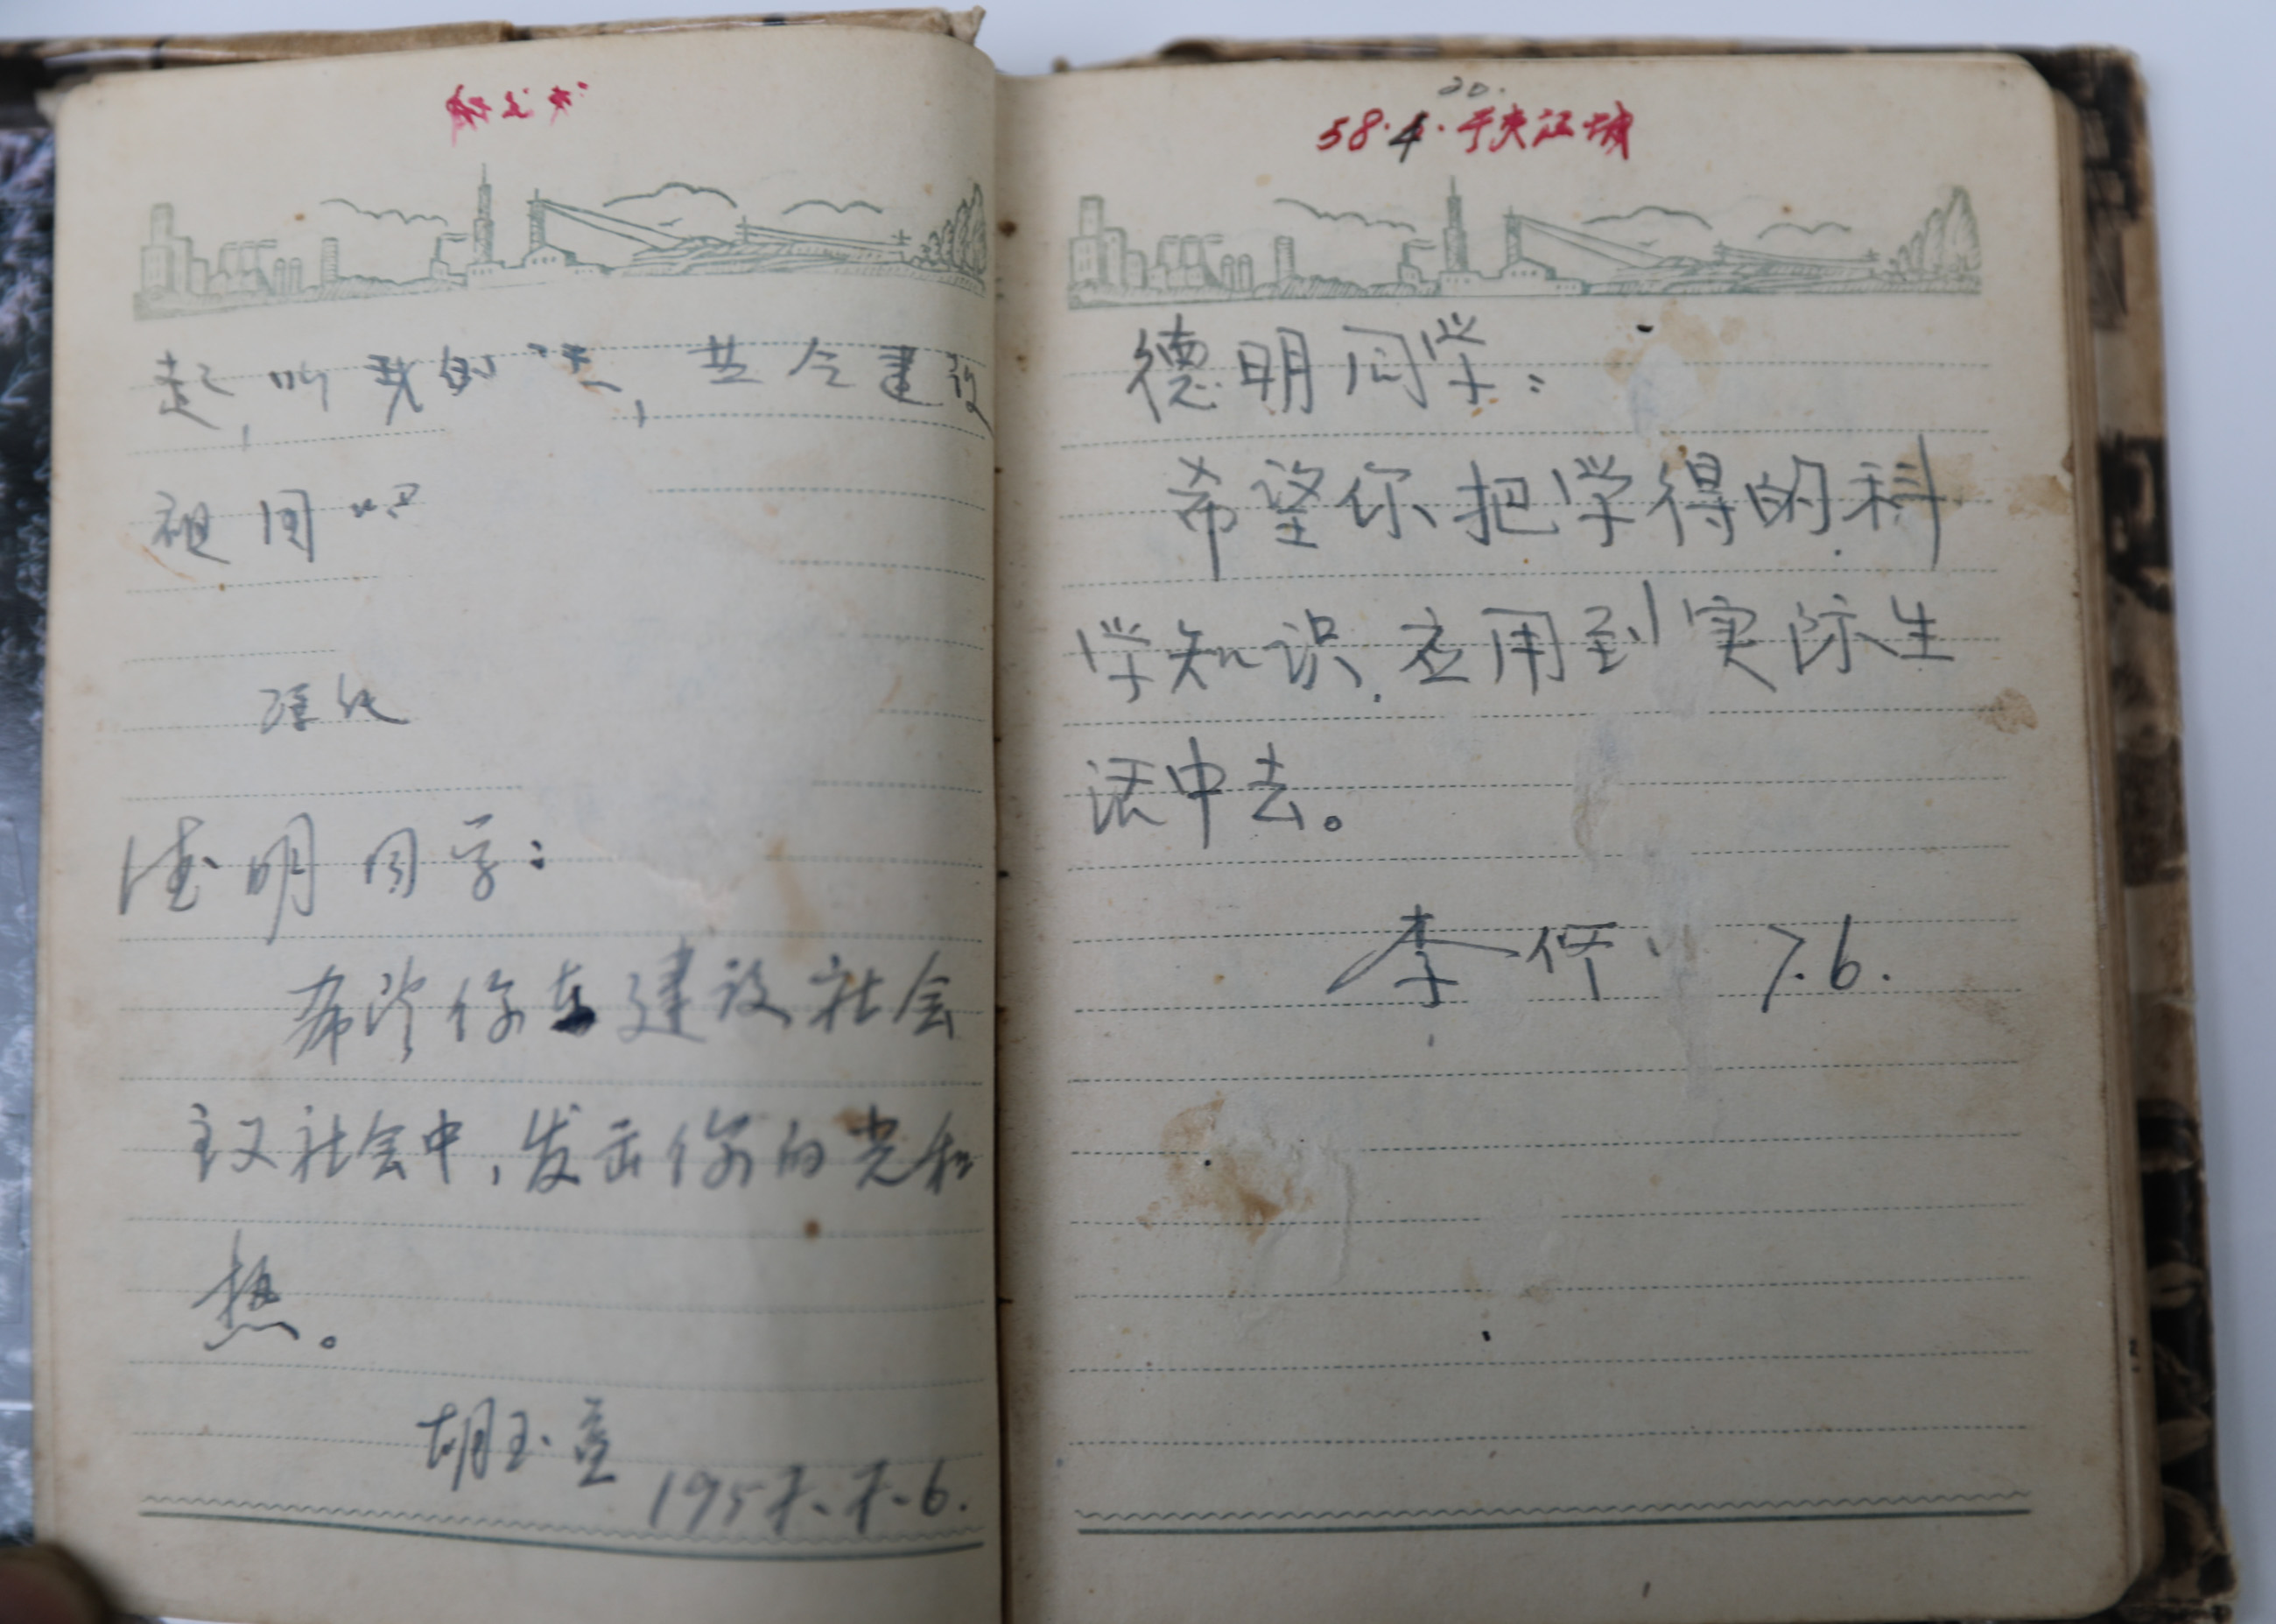 起,听我的话,共仝建设
祖国吧
德明同学:
希望你在建设社会
主义社会中,发击你的光和
热。
胡玉
1957.7.6.
20.
58.4.于夹江城
德明同学:
希望你把学得的科
学知识,应用到实际生
活中去。
李 7.6.